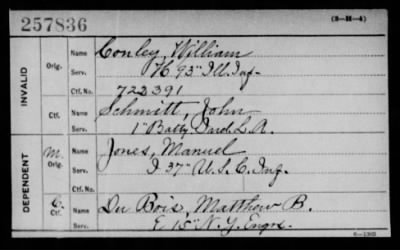 257836
(3—M—4)
INVALID
Orig.
Name Conley, William
Serv. H 93" Ill. Inf.
Ctf. No. 722391
Ctf.
Name Schmitt, John
Serv. 1" Batty Ind. L. A.
DEPENDENT
M. Orig.
Name Jones, Manuel
Serv. I 37" U. S. C. Inf.
Ctf. No.
C. Ctf.
Name Du Bois, Matthew B.
Serv. E 15" N. Y. Engrs.